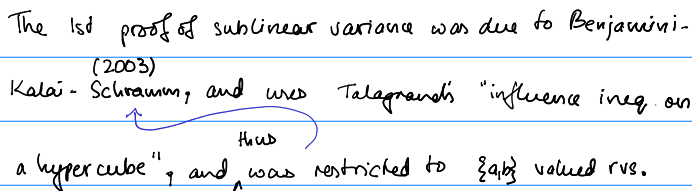 The 1st proof of sublinear variance was due to Benjamini-
(2003)
Kalai - Schramm, and uses Talagrand's "influence ineq. on
thus
a hypercube", and ^ was restricted to {a,b} valued rvs.